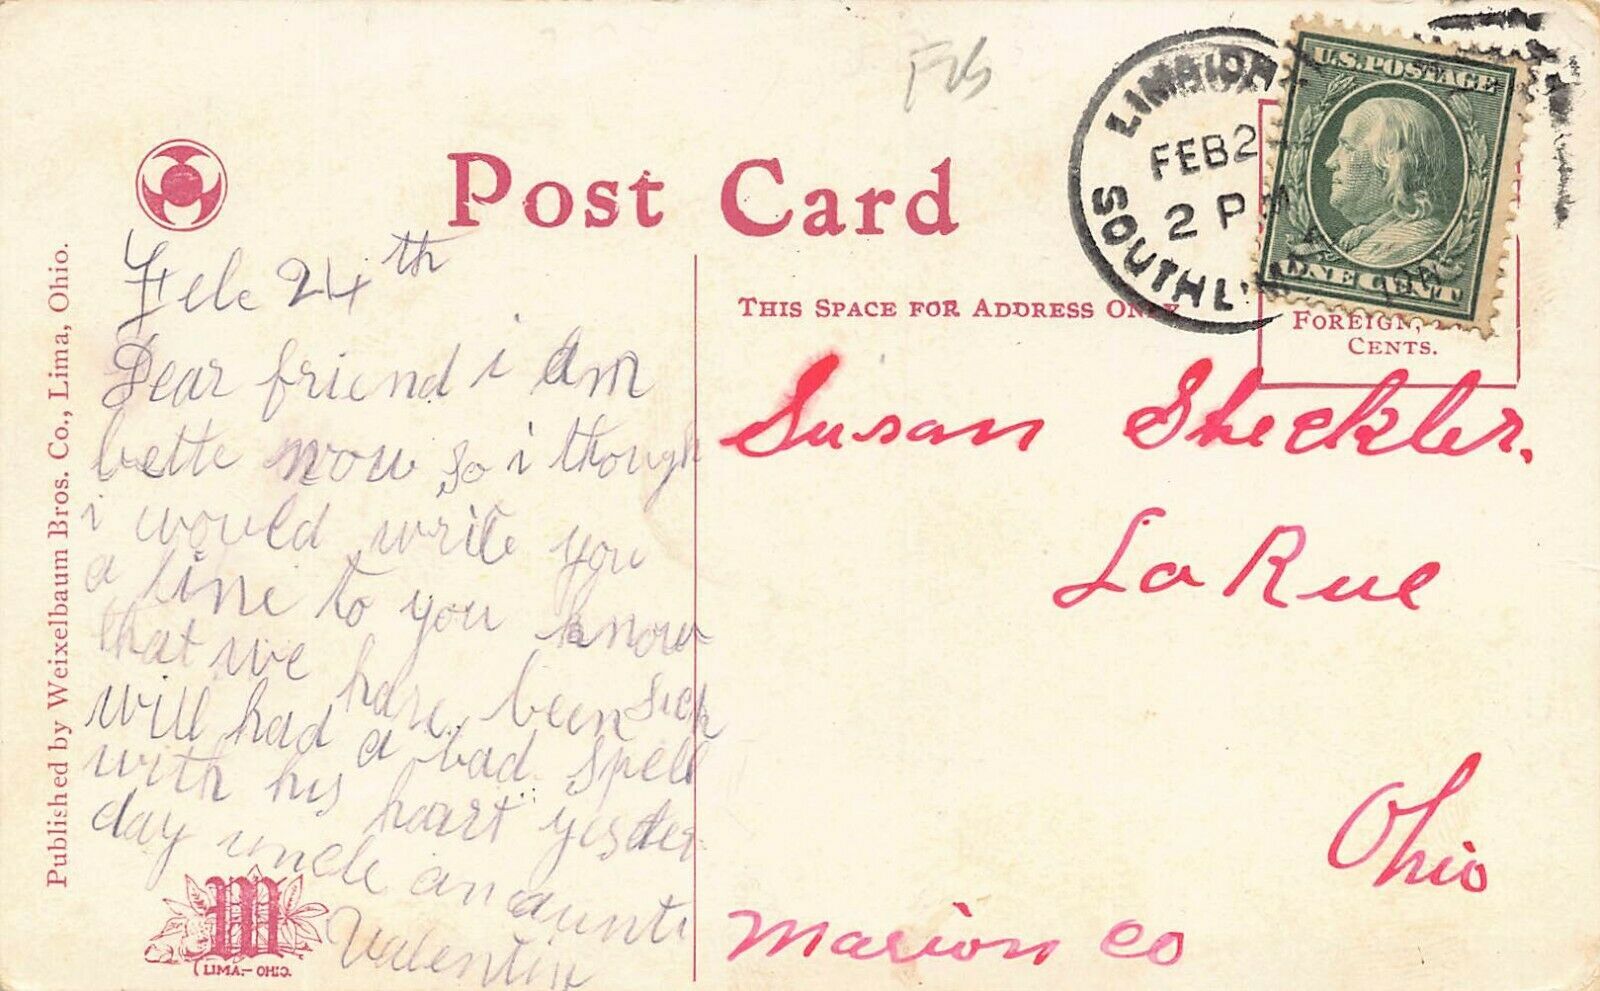 F25
Post Card
LIMA, OHI
FEB 2
2 PM
SOUTH LIMA
U.S. POSTAGE
ONE CENT
THIS SPACE FOR ADDRESS ONLY
FOREIGN,
CENTS.
Published by Weixelbaum Bros. Co., Lima, Ohio.
Feb 24th
Dear friend i am
bette now so i though
i would write you
a line to you know
that we have been sick
will had a bad spell
with his heart yester
day uncle an aunt
Valentin
W
LIMA - OHIO.
Susan Sheckler.
La Rue
Ohio
Marion Co